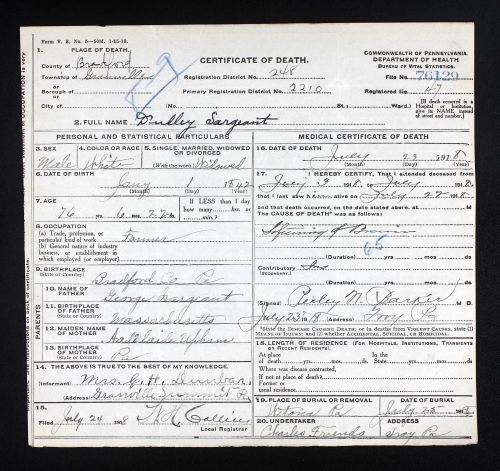 Form V. S. No. 5—50M. 1-15-18.
1. PLACE OF DEATH.
County of Bradford
Township of Granville
or
Borough of
or
City of
CERTIFICATE OF DEATH.
Registration District No. 248
Primary Registration District No. 2210
(No. St.; Ward)
COMMONWEALTH OF PENNSYLVANIA.
DEPARTMENT OF HEALTH
BUREAU OF VITAL STATISTICS.
File No. 76129
Registered No. 47
[If death occurred in a Hospital or Institution, give its NAME instead of street and number.]
2. FULL NAME Dudley Sargeant
PERSONAL AND STATISTICAL PARTICULARS
3. SEX
Male
4. COLOR OR RACE
White
5. SINGLE, MARRIED, WIDOWED OR DIVORCED
(Write the word) Widowed
6. DATE OF BIRTH
Jany 1 1842
(Month) (Day) (Year)
7. AGE
76 yrs. 6 mos. 22 ds.
If LESS than 1 day how many hrs. or min.
8. OCCUPATION
(a) Trade, profession, or particular kind of work Farmer
(b) General nature of industry, business, or establishment in which employed (or employer)
9. BIRTHPLACE
(State or Country) Bradford Co Pa
10. NAME OF FATHER
George Sargeant
11. BIRTHPLACE OF FATHER
(State or Country) Massachusetts
12. MAIDEN NAME OF MOTHER
13. BIRTHPLACE OF MOTHER
(State or Country) Pa
PARENTS
14. THE ABOVE IS TRUE TO THE BEST OF MY KNOWLEDGE.
(Informant) Mrs. C. H. Dunbar
(Address) Granville Summit Pa
15.
Filed July 24 1918
Local Registrar
MEDICAL CERTIFICATE OF DEATH
16. DATE OF DEATH
July 23 1918
(Month) (Day) (Year)
17. I HEREBY CERTIFY, That I attended deceased from
July 3 1918, to July 1918,
that I last saw alive on July 22 1918
and that death occurred, on the date stated above, at M.
The CAUSE OF DEATH* was as follows:
Softening of Brain
65
(Duration) yrs. mos. ds.
Contributory
(SECONDARY)
(Duration) yrs. mos. ds.
(Signed) Perley N. Barker M. D.
July 23 1918 (Address) Troy Pa
*State the DISEASE CAUSING DEATH; or in deaths from VIOLENT CAUSES, state (1) MEANS OF INJURY; and (2) whether ACCIDENTAL, SUICIDAL or HOMICIDAL.
18. LENGTH OF RESIDENCE (FOR HOSPITALS, INSTITUTIONS, TRANSIENTS OR RECENT RESIDENTS).
At place of death yrs. mos. ds. In the State yrs. mos. ds.
Where was disease contracted,
if not at place of death?
Former or usual residence
19. PLACE OF BURIAL OR REMOVAL
Wetona Pa
DATE OF BURIAL
July 25 191
20. UNDERTAKER
Charles Friends
ADDRESS
Troy Pa